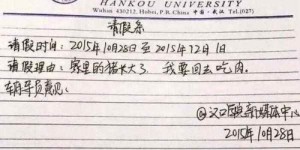 HANKOU UNIVERSITY
Wuhan 430212, Hubei, P.R.China 中国·武汉 Tel:(027)
请假条
请假时间：2015年10月28日至2015年12月1日
请假理由：家里的猪长大了，我要回去吃肉。
辅导员意见：
@汉口医院新媒体中心
2015年10月28日